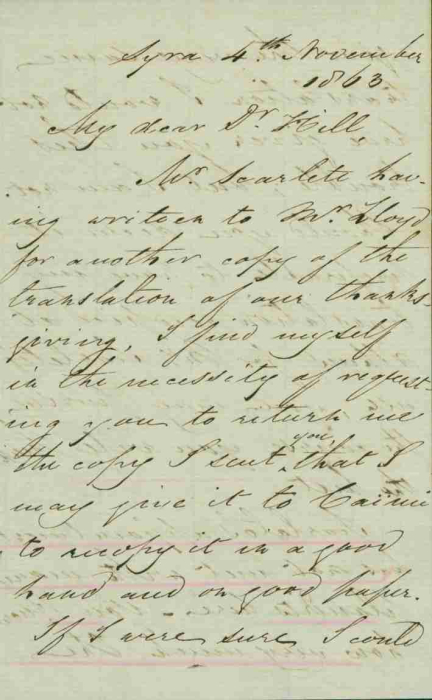 Syra 4th November
1863
My dear Dr Hill,
Mr Scarlett hav-
ing written to Mr Lloyd
for another copy of the
translation of our thanks-
giving, I find myself
in the necessity of request-
ing you to return me
the copy I sent you, that I
may give it to
to recopy it in a good
hand and on good paper.
If I were sure I could